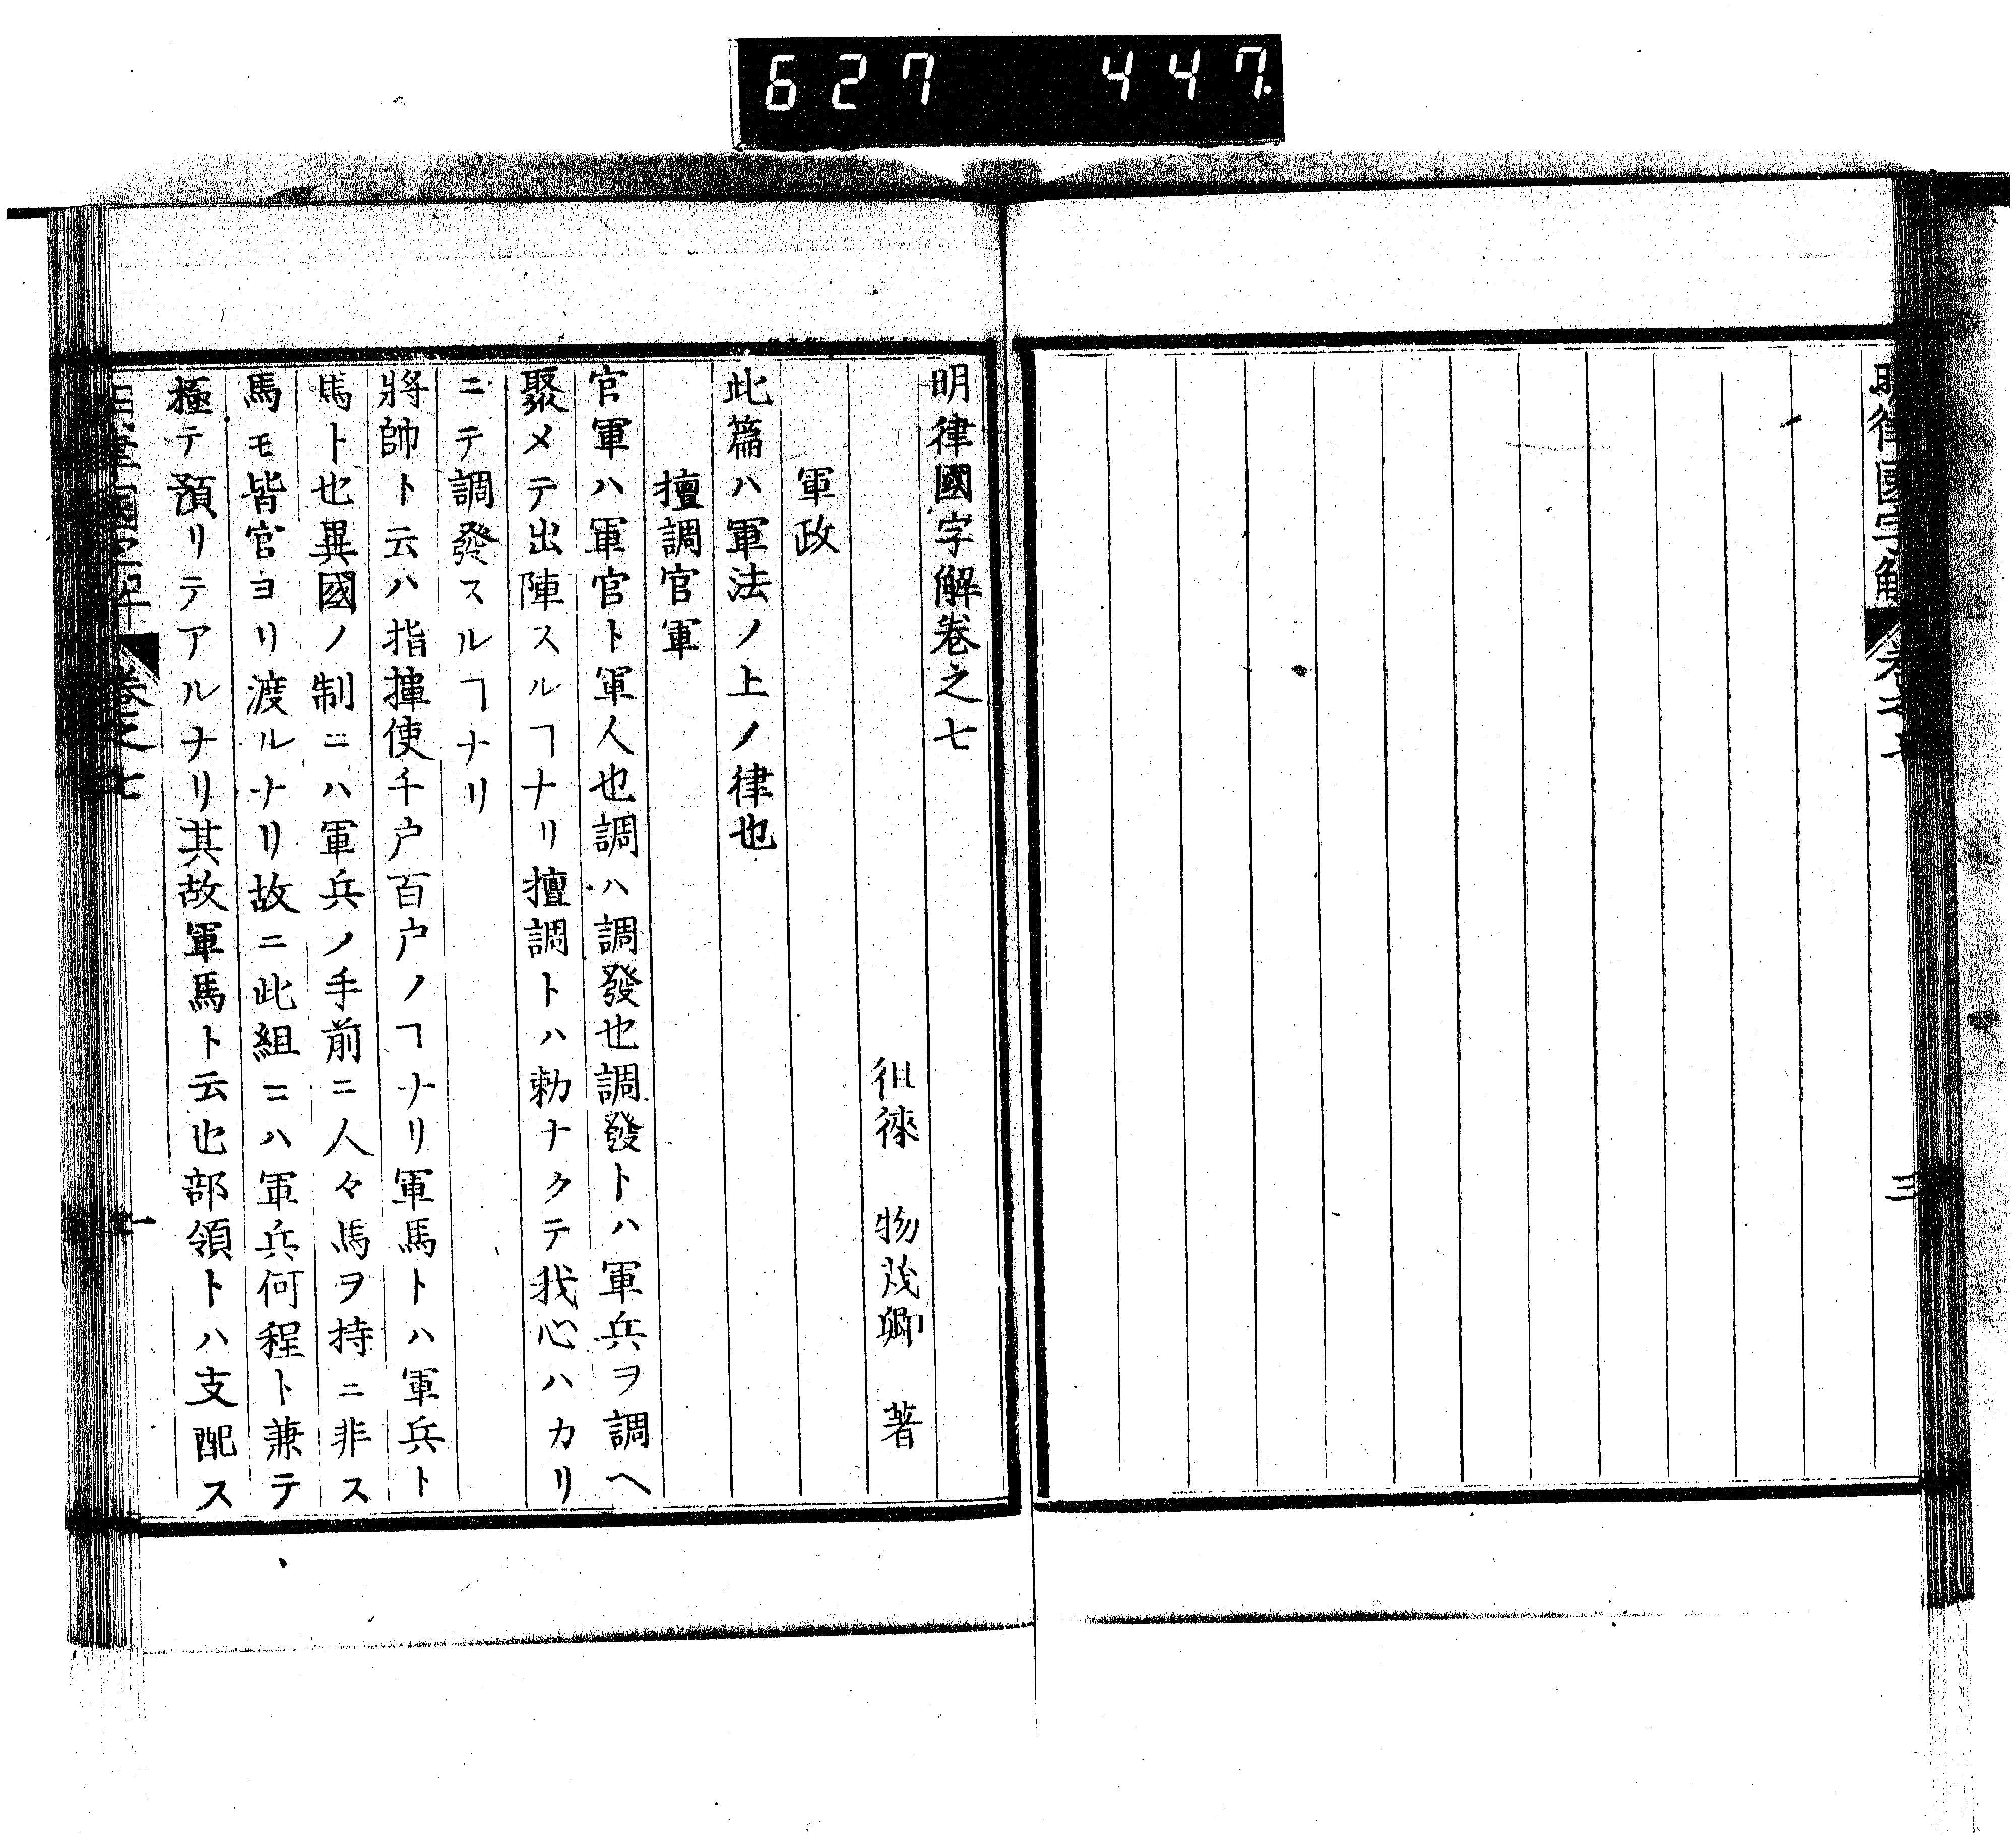 627 447.
明律國字解
卷之七
三
明律國字解卷之七
徂徠 物茂卿 著
軍政
此篇ハ軍法ノ上ノ律也
擅調官軍
官軍ハ軍官ト軍人也調ハ調發也調發トハ軍兵ヲ調ヘ
聚メテ出陣スルヿナリ擅調トハ勅ナクテ我心ハカリ
ニテ調發スルヿナリ
將帥ト云ハ指揮使千户百户ノヿナリ軍馬トハ軍兵ト
馬ト也異國ノ制ニハ軍兵ノ手前ニ人々馬ヲ持ニ非ス
馬モ皆官ヨリ渡ルナリ故ニ此組ニハ軍兵何程ト兼テ
極テ預リテアルナリ其故軍馬ト云也部領トハ支配ス
明律國字解
卷之七
一